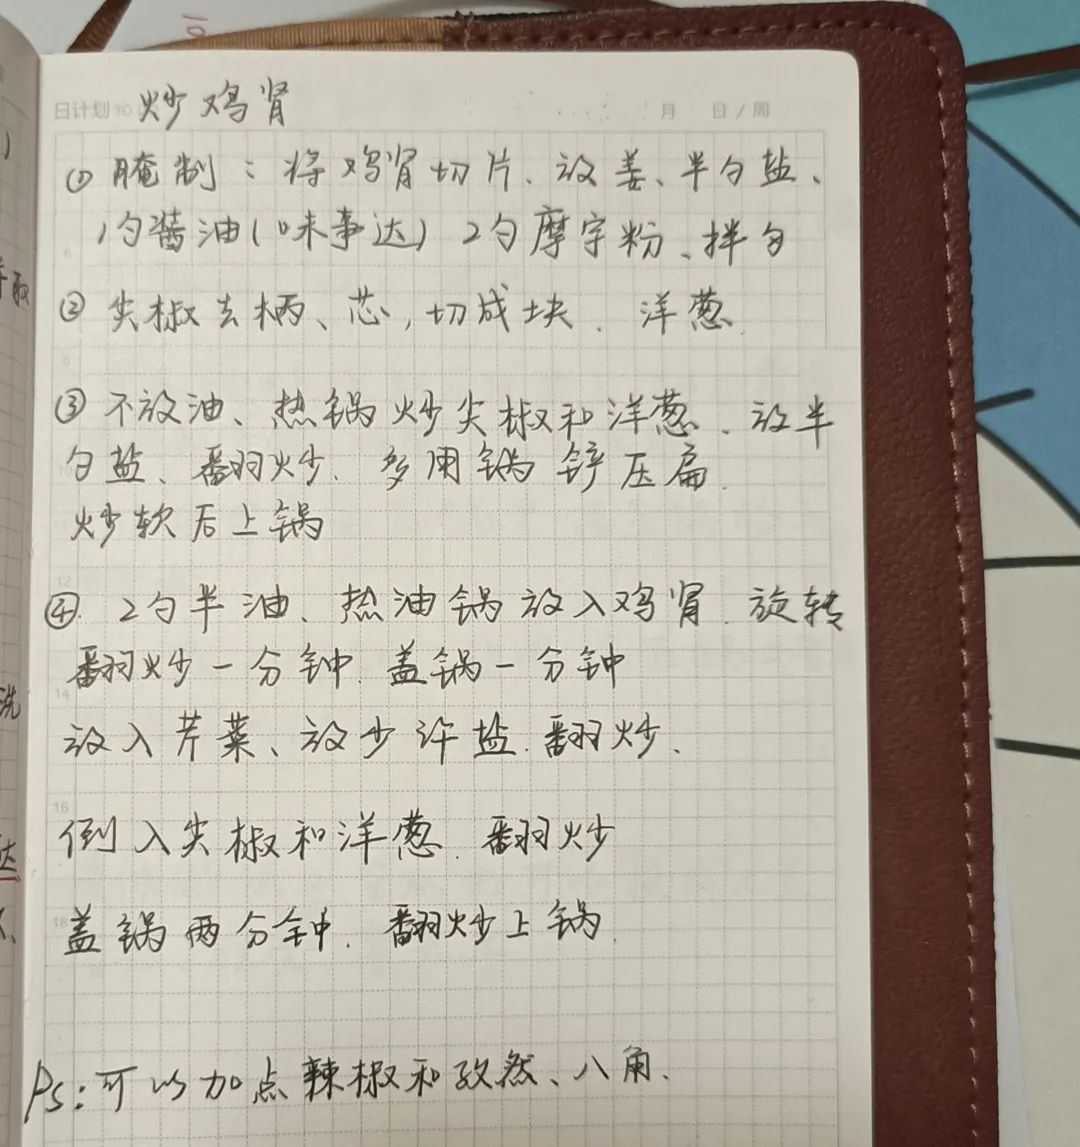 日计划 TO 炒鸡肾
月 日/周
① 腌制：将鸡肾切片、放姜、半勺盐、
1勺酱油(味事达) 2勺摩字粉、拌匀
② 尖椒去柄、芯,切成块. 洋葱.
③ 不放油、热锅炒尖椒和洋葱、放半
勺盐、翻炒、多用锅锌压扁.
炒软后上锅
④. 2勺半油、热油锅放入鸡肾.旋转
翻炒一分钟.盖锅一分钟
放入芹菜、放少许盐.翻炒、
倒入尖椒和洋葱.翻炒
盖锅两分钟.翻炒上锅.
Ps:可以加点辣椒和孜然、八角.